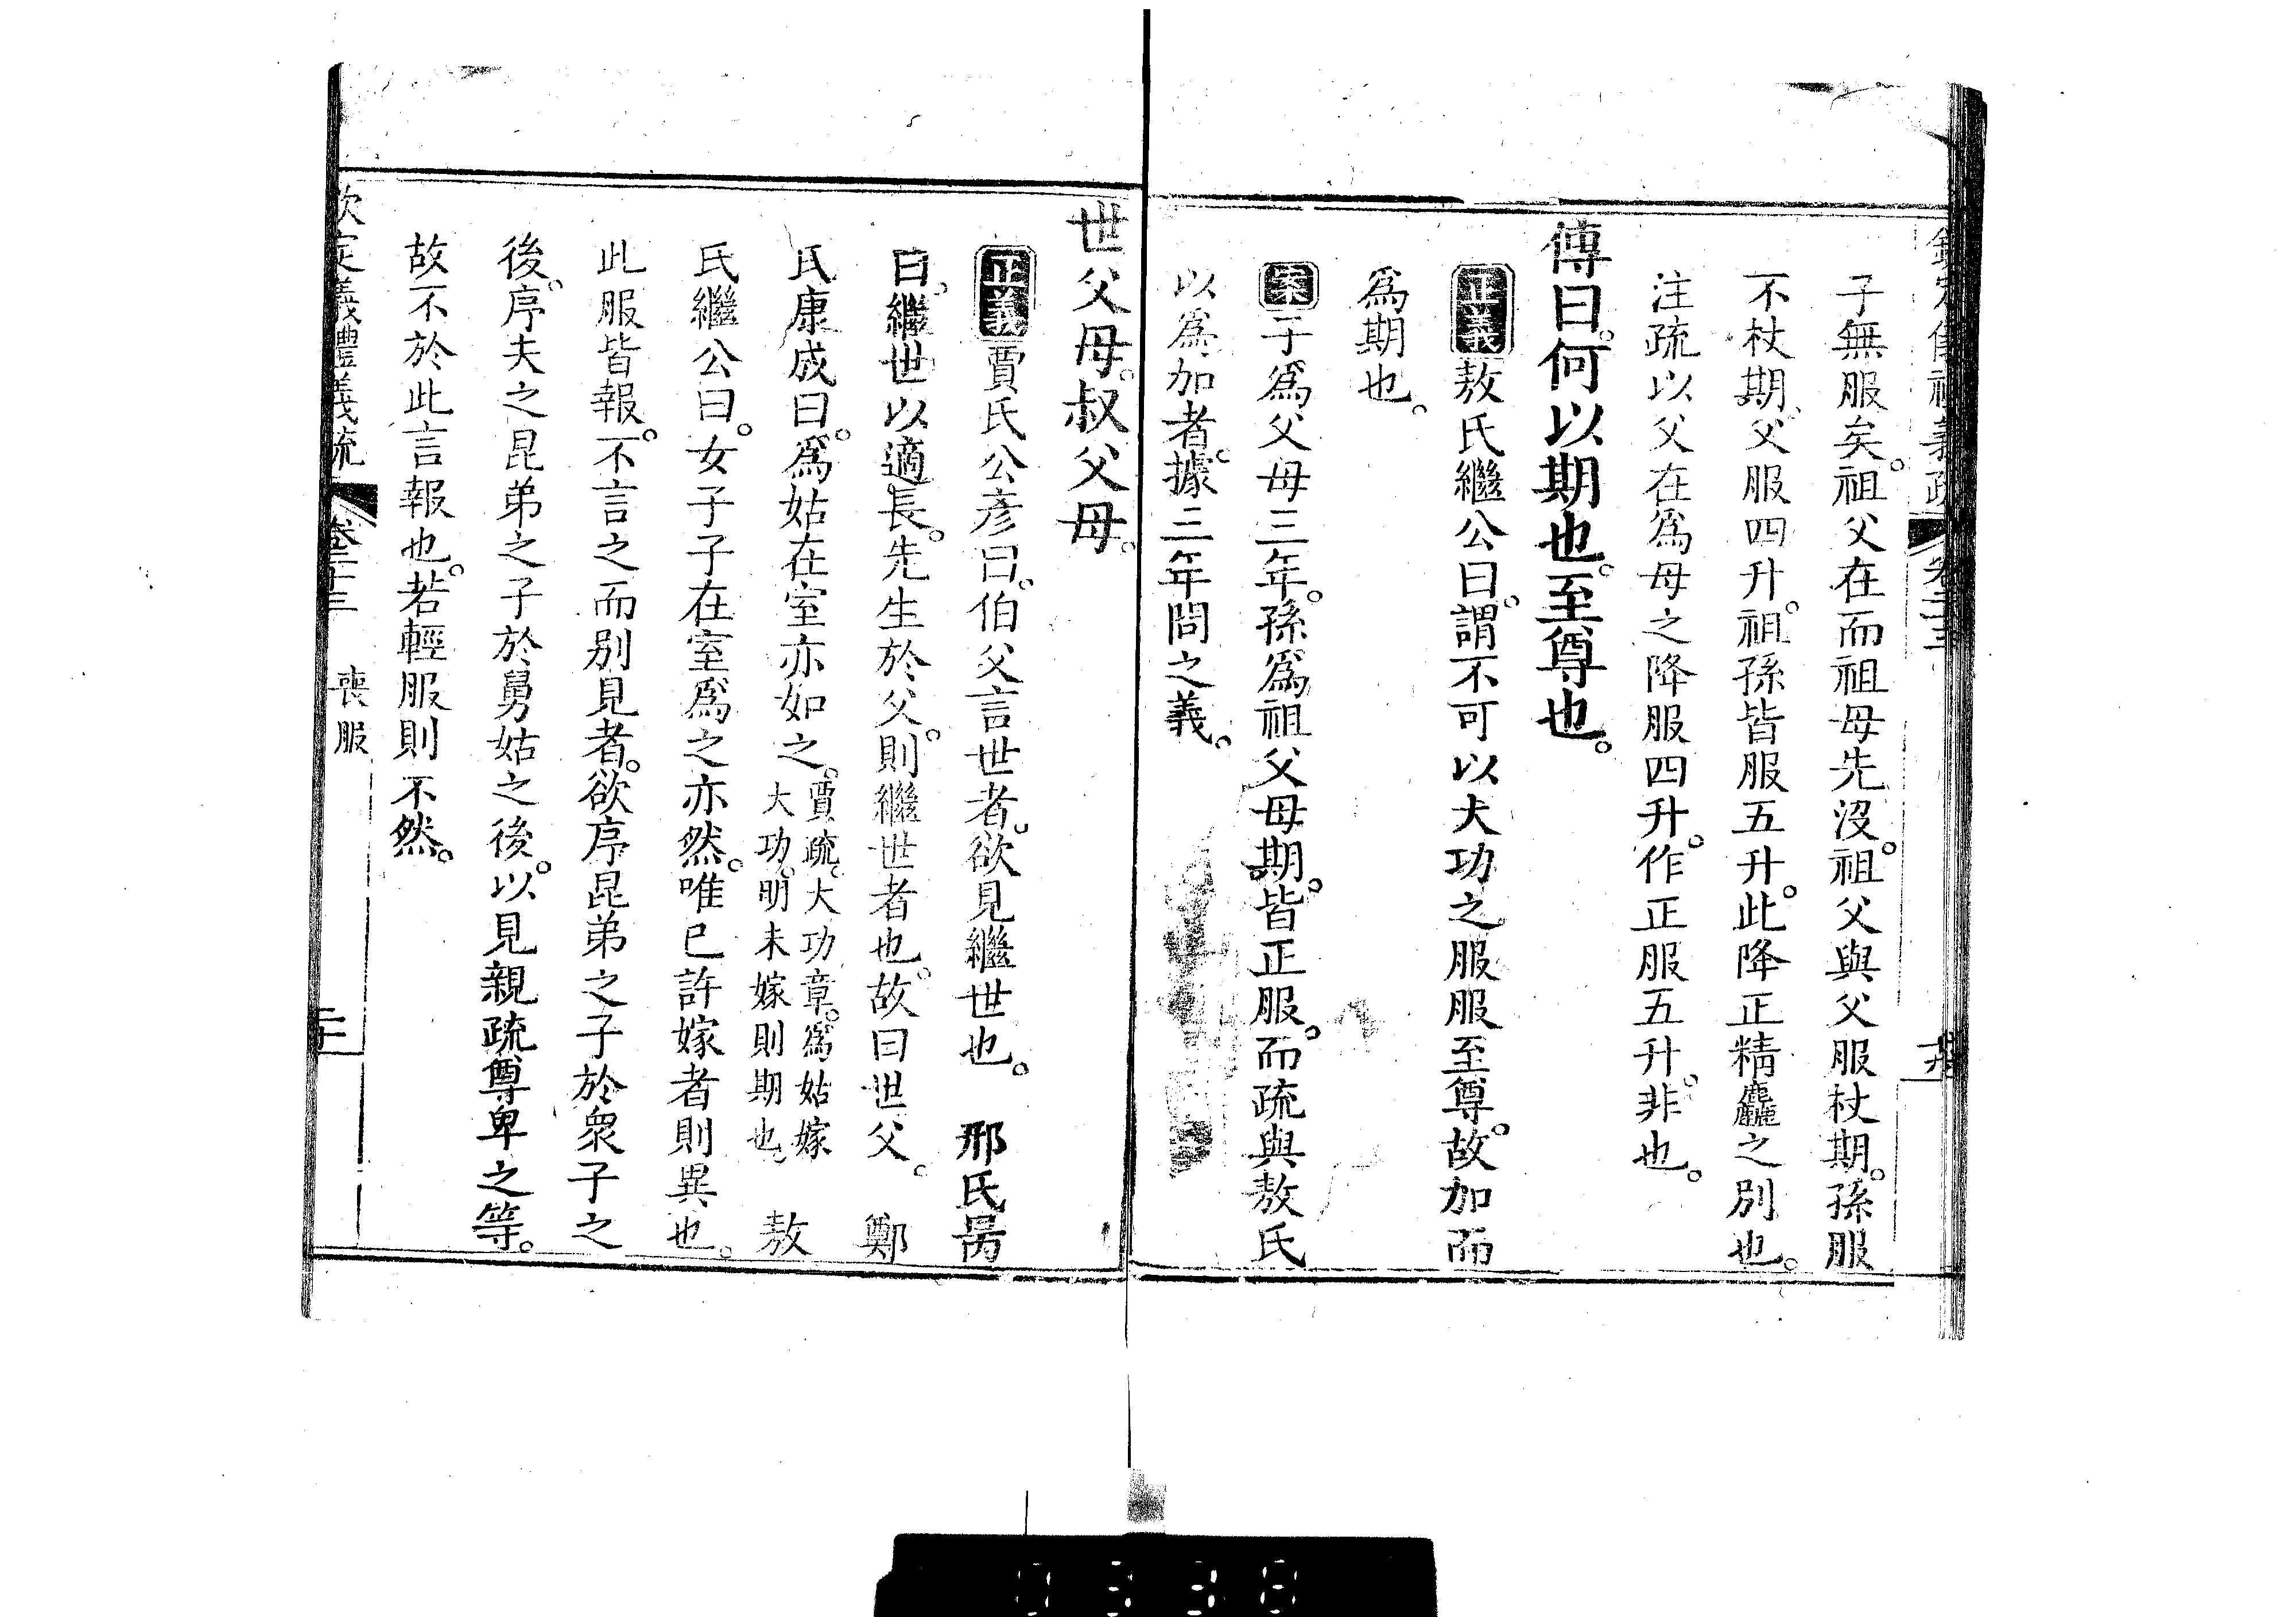 子無服矣。祖父在而祖母先沒。祖父與父服杖期。孫服
不杖期。父服四升。祖孫皆服五升。此降正精麤之別也。
注疏以父在爲母之降服四升。作正服五升。非也。
傳曰。何以期也。至尊也。
正義敖氏繼公曰。謂不可以大功之服服至尊。故加而
爲期也。
案子爲父母三年。孫爲祖父母期。皆正服。而疏與敖氏
以爲加者。據三年問之義。
世父母。叔父母。
正義賈氏公彥曰。伯父言世者。欲見繼世也。 邢氏昺
曰。繼世以適長。先生於父。則繼世者也。故曰世父。 鄭
氏康成曰。爲姑在室亦如之。賈疏。大功章。爲姑嫁大功。明未嫁則期也。 敖
氏繼公曰。女子子在室爲之亦然。唯已許嫁者則異也。
此服皆報。不言之而別見者。欲序昆弟之子於衆子之
後。序夫之昆弟之子於舅姑之後。以見親疏尊卑之等。
故不於此言報也。若輕服則不然。
欽定義禮義疏 卷二十三 喪服 二十
0338